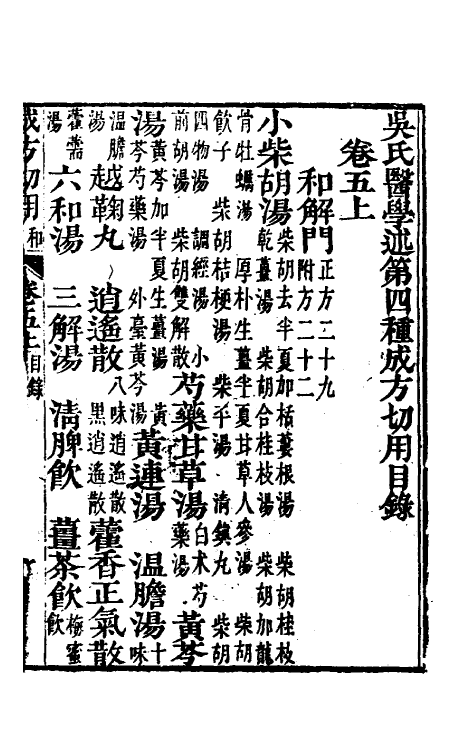 吳氏醫學述第四種成方切用目錄
卷五上
和解門 正方二十九 附方二十二
小柴胡湯 柴胡去半夏加栝蔞根湯 柴胡桂枝
乾薑湯 柴胡合桂枝湯 柴胡加龍
骨牡蠣湯 厚朴生薑半夏甘草人參湯 柴胡
飲子 柴胡桔梗湯 柴平湯 清鎮丸 柴胡
四物湯 調經湯 小
前胡湯 柴胡雙解散 芍藥甘草湯 白朮芍藥湯 黃芩
湯 黃芩加半夏生薑湯 黃
芩芍藥湯 外臺黃芩湯 黃連湯 溫膽湯 十味
溫膽湯 越鞠丸 逍遙散 八味逍遙散 黑逍遙散 藿香正氣散
藿薷湯 六和湯 三解湯 清脾飲 薑茶飲 梅蜜飲
成方切用 和 卷五上目錄